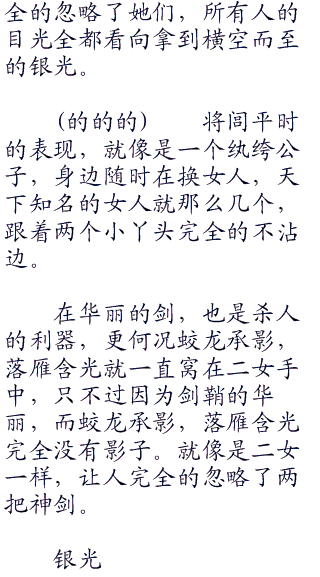 全的忽略了她们，所有人的
目光全都看向拿到横空而至
的银光。
(的的的)　　将闾平时
的表现，就像是一个纨绔公
子，身边随时在换女人，天
下知名的女人就那么几个，
跟着两个小丫头完全的不沾
边。
在华丽的剑，也是杀人
的利器，更何况蛟龙承影，
落雁含光就一直窝在二女手
中，只不过因为剑鞘的华
丽，而蛟龙承影，落雁含光
完全没有影子。就像是二女
一样，让人完全的忽略了两
把神剑。
银光